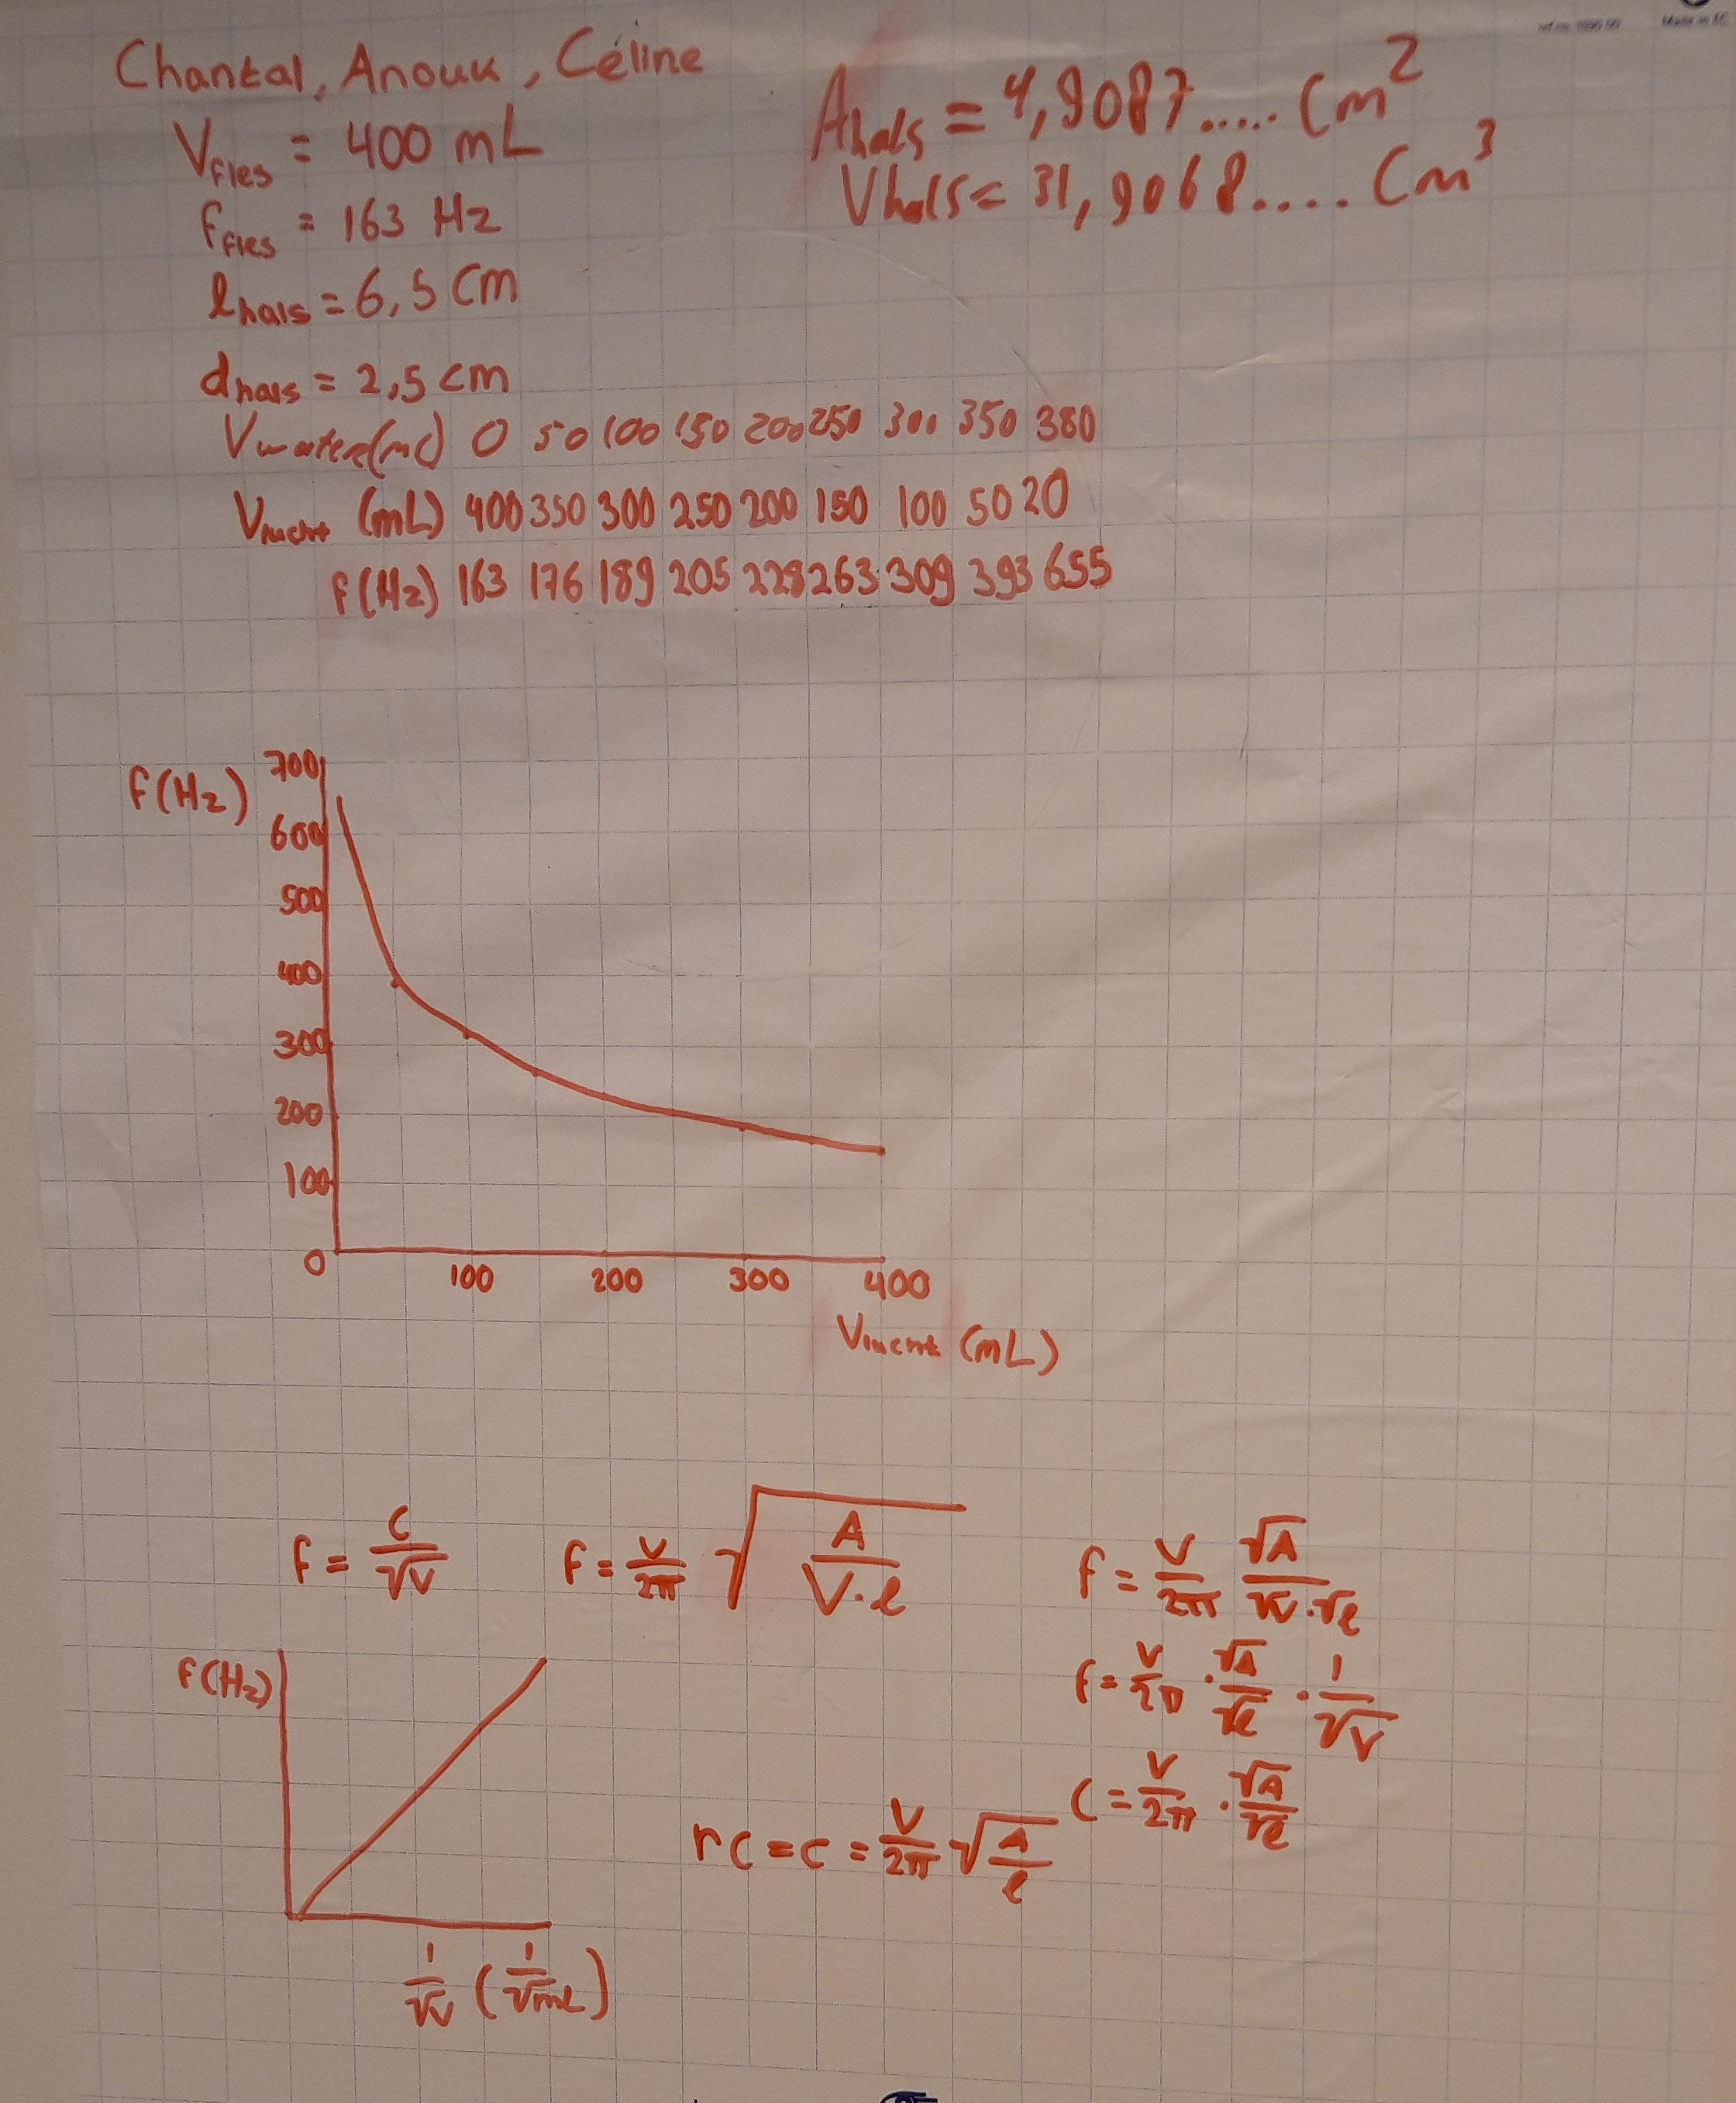 Chantal, Anouk, Céline
V fles = 400 mL
f fles = 163 Hz
l hals = 6,5 cm
d hals = 2,5 cm
A hals = 4,9087..... cm²
V hals = 31,9068..... cm³
V water (mL) 0 50 100 150 200 250 300 350 380
V lucht (mL) 400 350 300 250 200 150 100 50 20
f (Hz) 163 176 189 205 228 263 309 393 655
f (Hz)
700
600
500
400
300
200
100
0
100 200 300 400
V lucht (mL)
f = c/√V
f = v/2π √(A/(V·l))
f = v/2π √A/(√V·√l)
f = v/2π · √A/√l · 1/√V
c = v/2π · √A/√l
rc = c = v/2π √(A/l)
f (Hz)
1/√V (1/√mL)